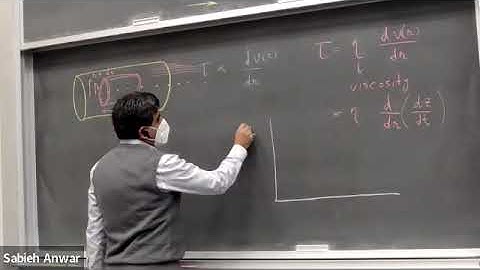 τ ∝ dv(r)/dr
τ = η dv(r)/dr
viscosity
= η d/dr (dz/dt)
Sabieh Anwar